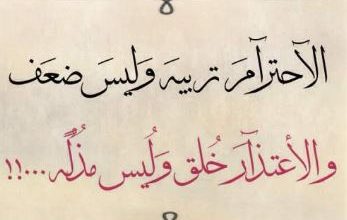 الآحترآمَ تربيهَ وَليسَ ضعَف
والأعتذآرَ خُلق وَلُيس مذُلَه ...!!